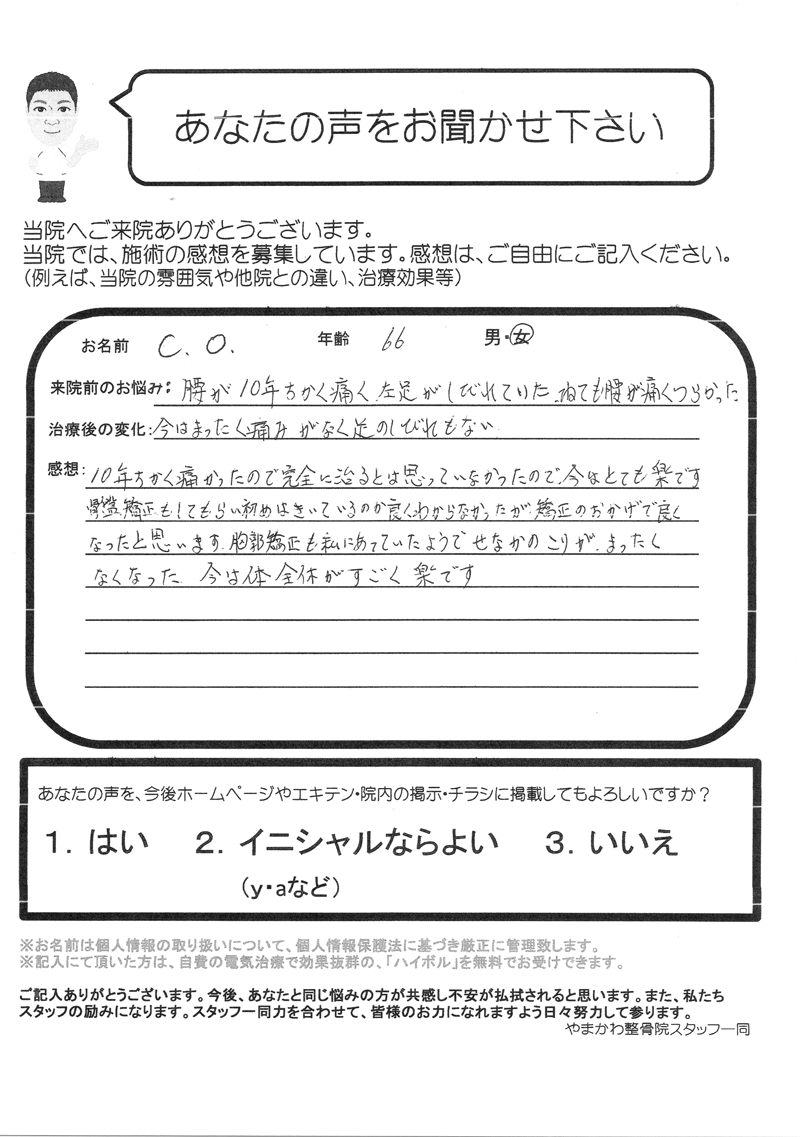 あなたの声をお聞かせ下さい
当院へご来院ありがとうございます。
当院では、施術の感想を募集しています。感想は、ご自由にご記入ください。
（例えば、当院の雰囲気や他院との違い、治療効果等）
お名前 C.O. 年齢 66 男・女
来院前のお悩み： 腰が10年ちかく痛く、左足がしびれていた。ねても腰が痛くつらかった
治療後の変化: 今はまったく痛みがなく足のしびれもない
感想: 10年ちかく痛かったので完全に治るとは思っていなかったので、今はとても楽です
骨盤矯正もしてもらい初めはきいているのか良くわからなかったが、矯正のおかげで良く
なったと思います。胸郭矯正も私にあっていたようでせなかのこりが、まったく
なくなった。今は体全体がすごく楽です
あなたの声を、今後ホームページやエキテン・院内の掲示・チラシに掲載してもよろしいですか？
1. はい 2. イニシャルならよい 3. いいえ
（y・aなど）
※お名前は個人情報の取り扱いについて、個人情報保護法に基づき厳正に管理致します。
※記入にて頂いた方は、自費の電気治療で効果抜群の、「ハイボル」を無料でお受けできます。
ご記入ありがとうございます。今後、あなたと同じ悩みの方が共感し不安が払拭されると思います。また、私たち
スタッフの励みになります。スタッフ一同力を合わせて、皆様のお力になれますよう日々努力して参ります。
やまかわ整骨院スタッフ一同